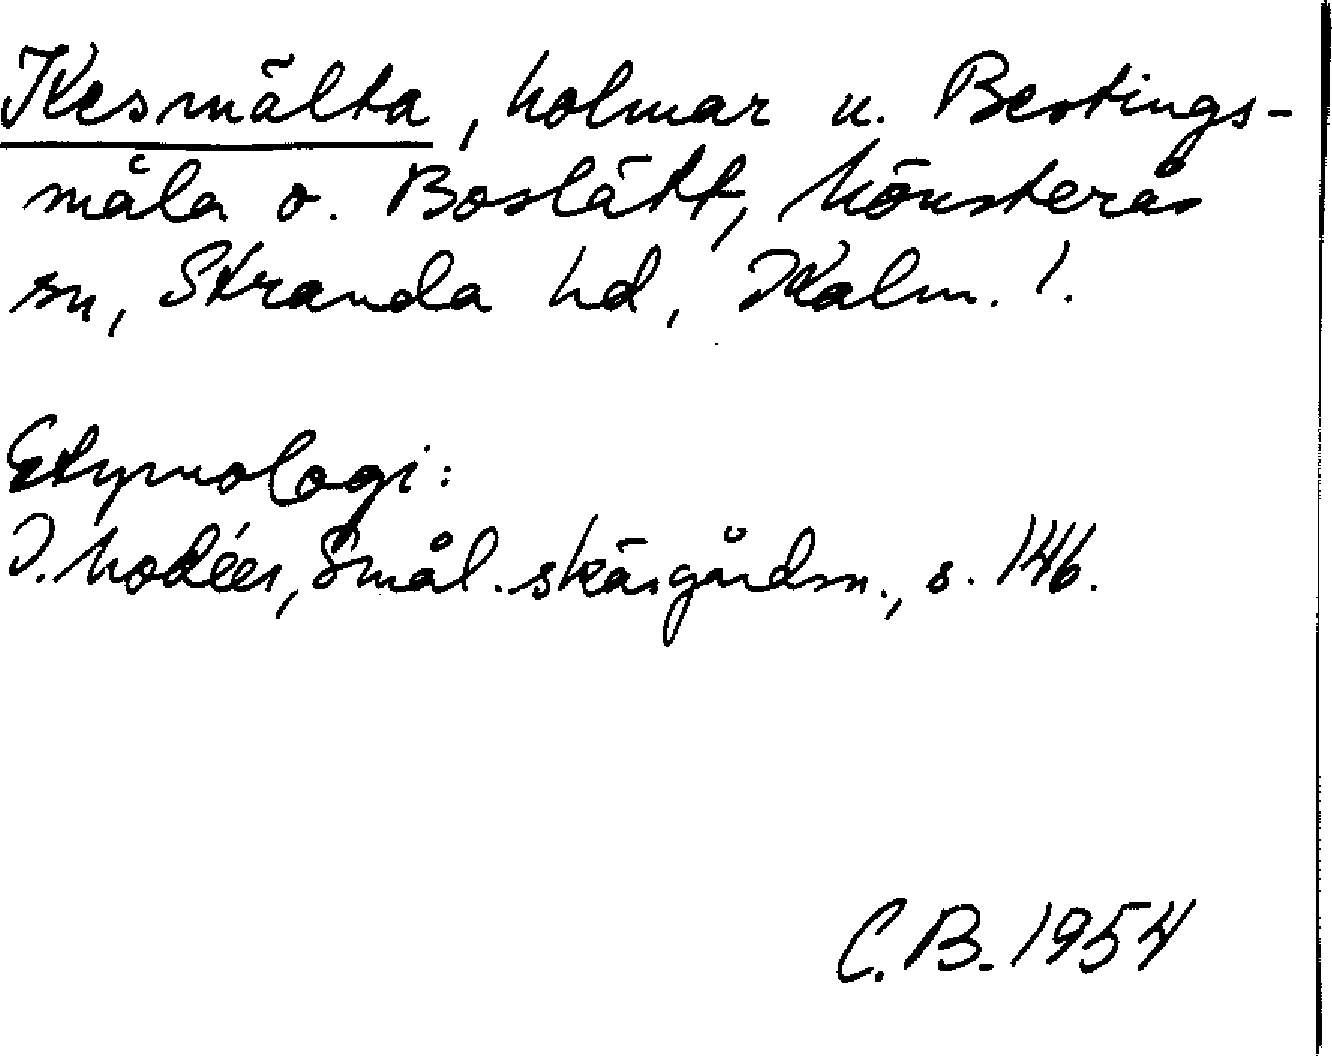 Kesmälta, holmar u. Bertings-
måla o. Boslätt, Mönsterås
sn, Stranda hd, Kalm. l.
Etymologi:
I. Modéer, Smål. skärgårdsn., s. 146.
C. B. 1954